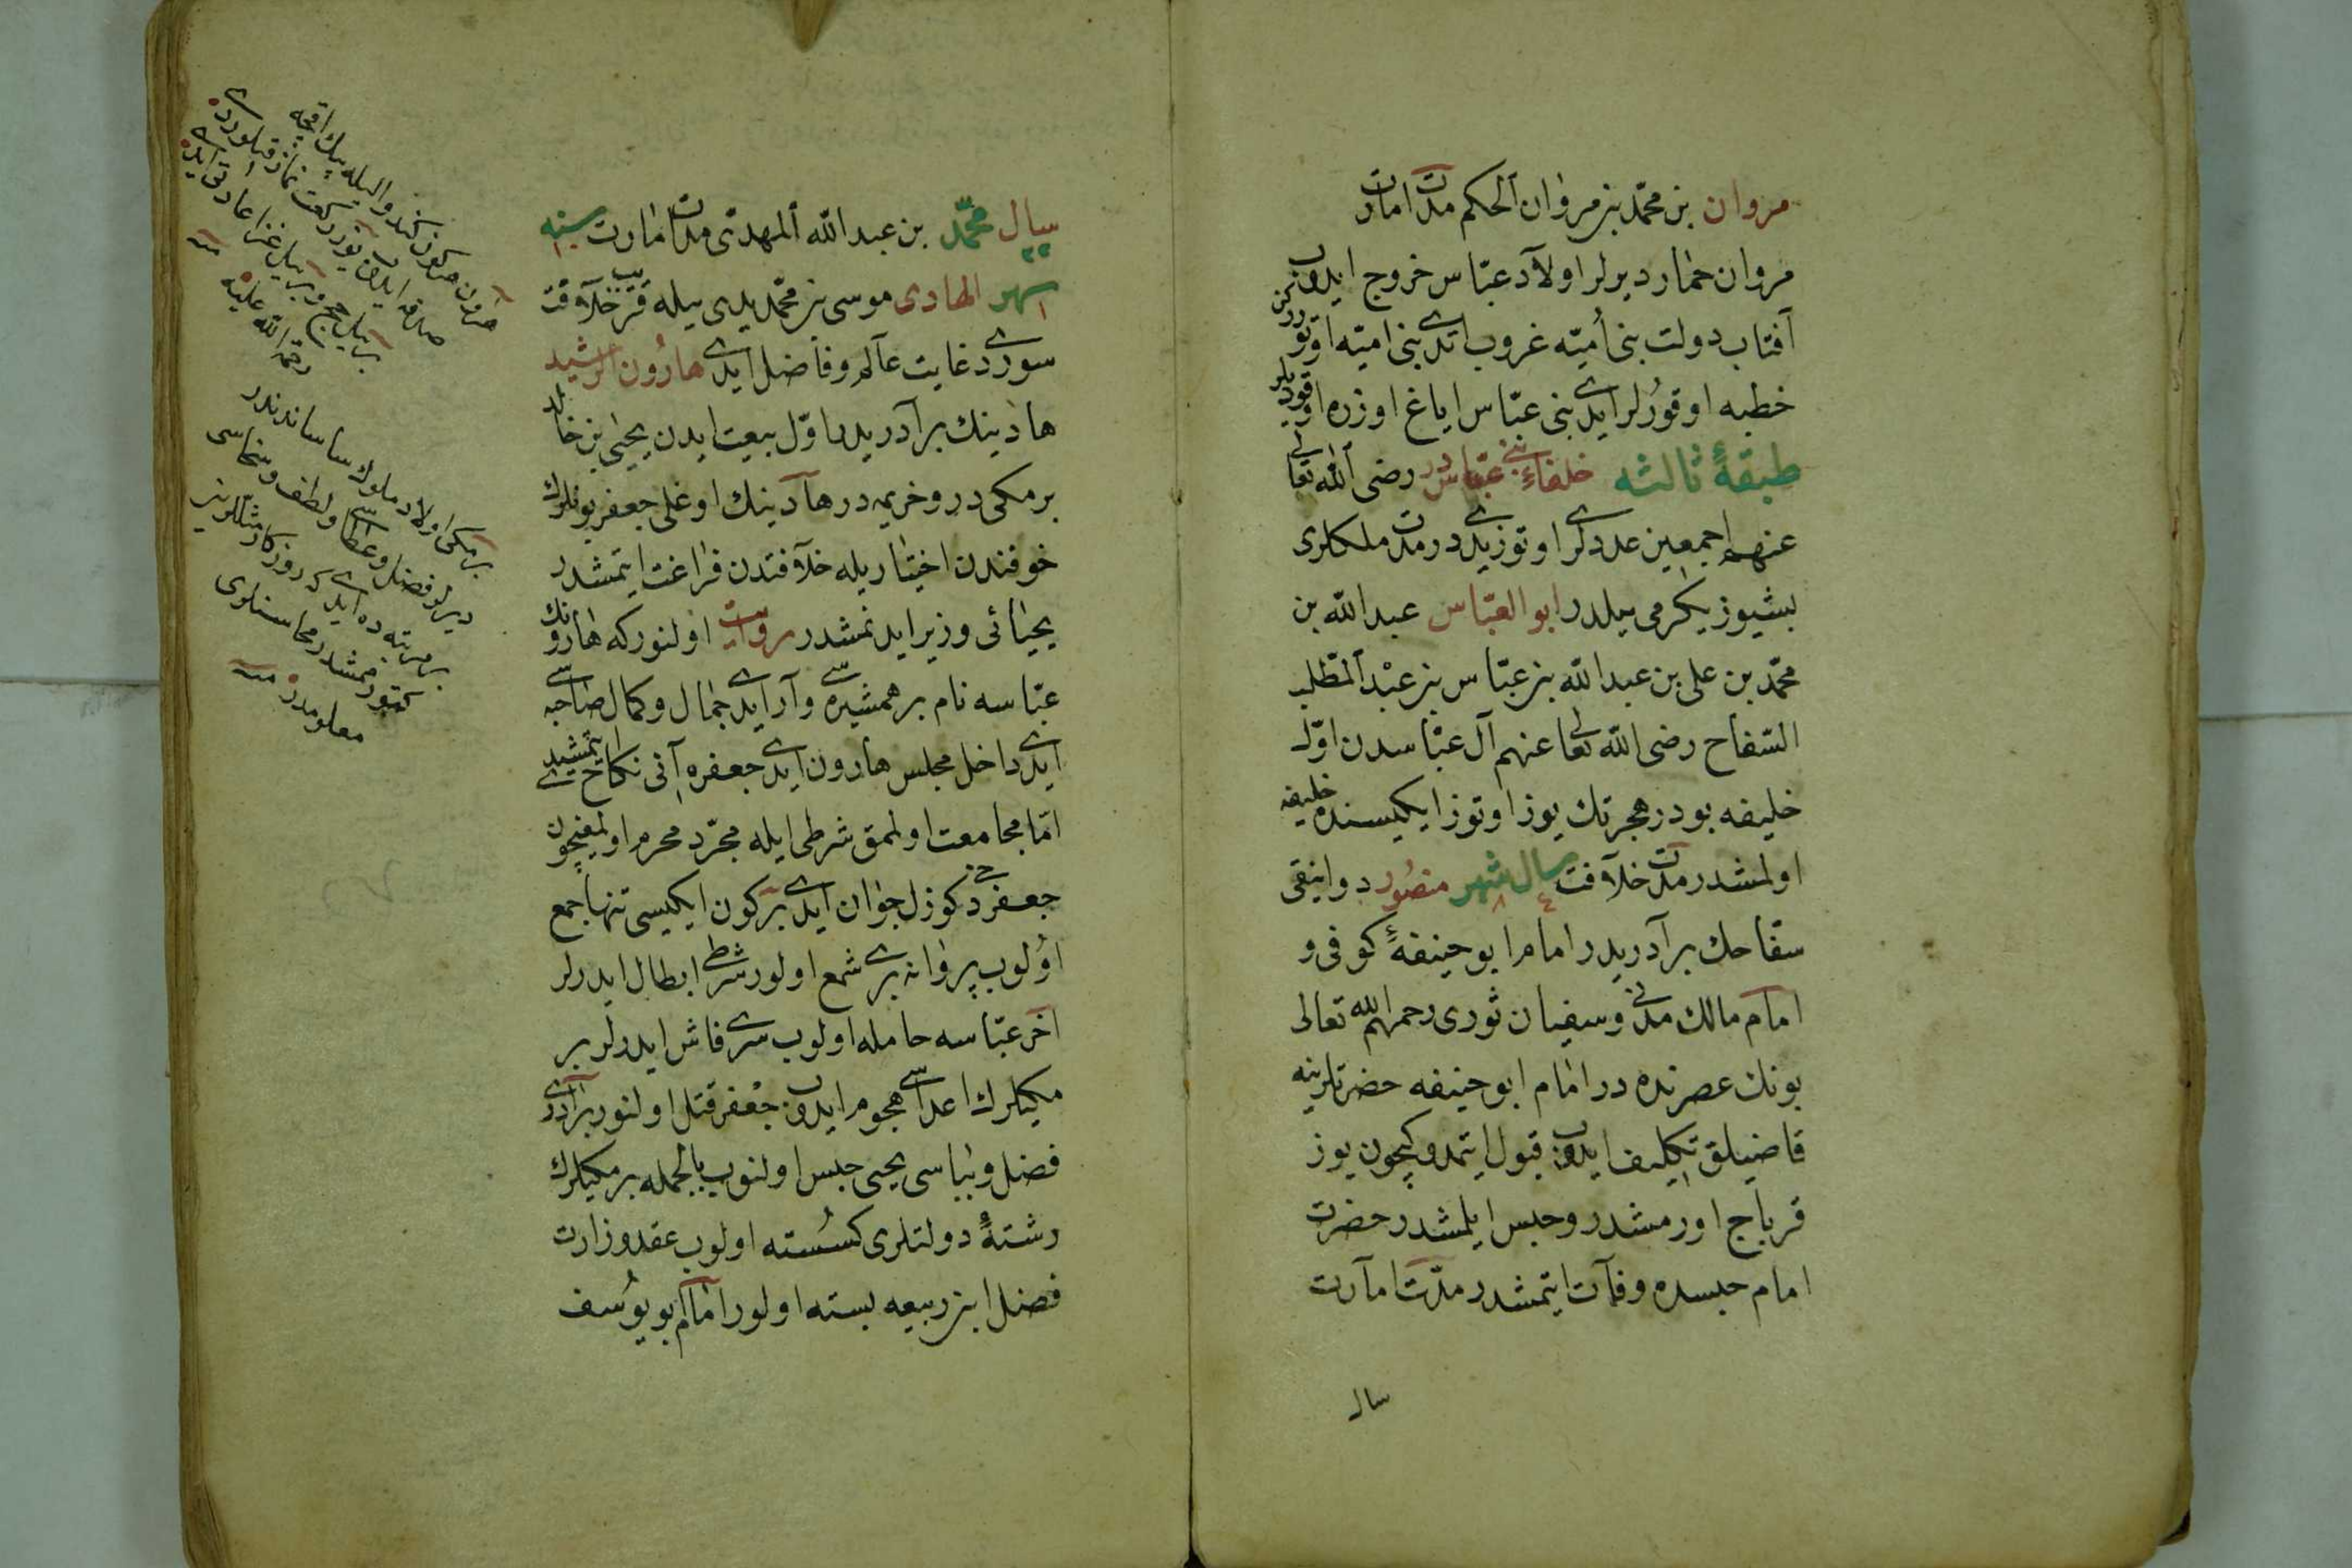 مروان بن محمّد بن مروان الحكم مدّت امارت
مروان حمار ديرلر اولاد عبّاس خروج ايدوب
آفتاب دولت بنى أميّه غروب اتدى بنى اميّه اوتورركن
خطبه اوقورلر ايدى بنى عبّاس اياغ اوزره اوقوديلر
طبقهٔ ثالثه خلفاء بنى عبّاس در رضى الله تعالى
عنهم اجمعين عددلرى اوتوزيدى در مدّت ملكلرى
بشيوز يكرمى ييلدر ابو العبّاس عبد الله بن
محمّد بن على بن عبد الله بن عبّاس بن عبد المطّلب
السّفاح رضى الله تعالى عنهم آل عبّاسدن اوّل
خليفه بودر هجرتك يوز اوتوز ايكيسنده خليفه
اولمشدر مدّت خلافت سال ٤ شهر ٨ منصور دوانيقى
سفّاحك برادريدر امام ابو حنيفهٔ كوفى و
امام مالك مدنى و سفيان ثورى رحمهم الله تعالى
بونك عصرنده در امام ابو حنيفه حضرتلرينه
قاضيلق تكليف ايدوب قبول ايتمدوكيچون يوز
قرباج اورمشدر وحبس ايلمشدر حضرت
امام حبسده وفات ايتمشدر مدّت امارت
سال
سال ٢٢ محمّد بن عبد الله المهدى مدّت امارت سنه ١٠
شهر ١ الهادى موسى بن محمّد يدى ييله قريب خلافت
سوردى غايت عالم وفاضل ايدى هارون الرشيد
هادينك برادريدر اوّل بيعت ايدن يحيى بن خالد
برمكى در وخريمه در هادينك اوغلى جعفر بونلرك
خوفندن اختياريله خلافتدن فراغت ايتمشدر
يحيائى وزير ايدنمشدر روايت اولنور كه هارونك
عبّاسه نام بر همشيرهسى وار ايدى جمال وكمال صاحبهسى
ايدى داخل مجلس هارون ايدى جعفره آنى نكاح ايتمشيدى
امّا مجامعت اولمق شرطى ايله مجرّد محرم اولمغيچون
جعفر دخى كوزل جوان ايدى بر كون ايكيسى تنها جمع
اولوب پروانه برى شمع اولور شرطى ابطال ايدرلر
اخر عبّاسه حامله اولوب سرّى فاش ايدرلر بر
مكيلرك اعداسى هجوم ايدوب جعفر قتل اولنور برادرى
فضل وباباسى يحيى حبس اولنوب بالجمله برمكيلرك
رشتهٔ دولتلرى كسسته اولوب عقد وزارت
فضل ابن ربيعه بسته اولور امام ابو يوسف
هارون هر كون كندو اليله بيك اقچه
صدقه ايدوب يوز ركعت نماز قيلوردى
بر ييل حج وبر ييل غزا عادتى ايدى
رحمة الله عليه منه
برمكى اولاد ملوك ساساندندر
ديرلر فضل وعطاسى ولطف وسخاسى
بر مرتبه ده ايدى كه روزكار مثللرين
كتورمشدر محاسنلرى
معلومدر منه